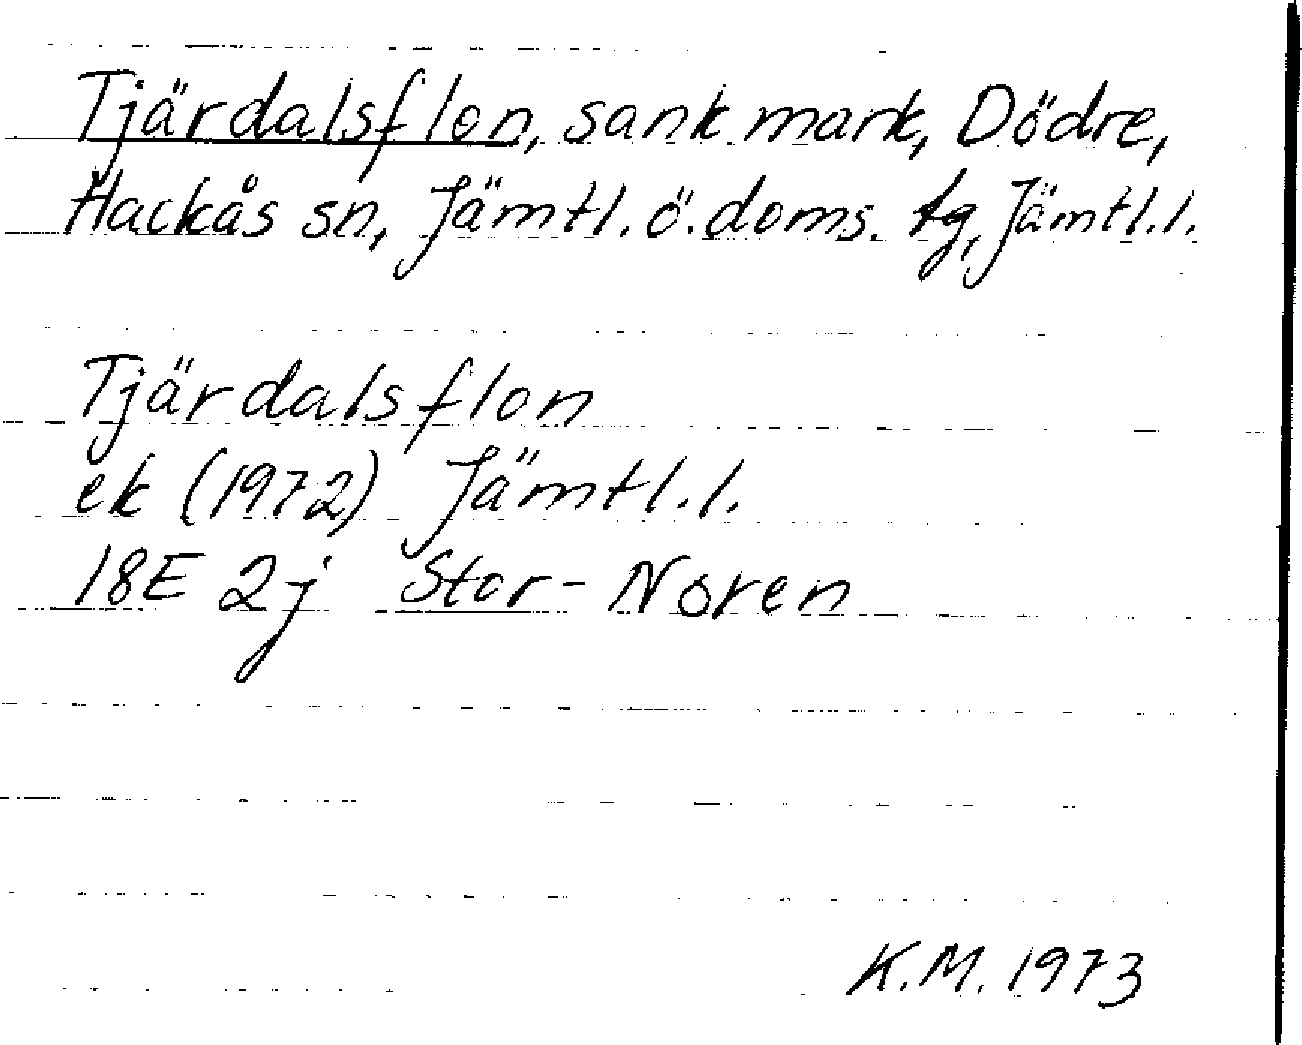 Tjärdalsflon, sank mark, Dödre,
Hackås sn, Jämtl. ö. doms. tg, Jämtl.l.
Tjärdalsflon
ek (1972) Jämtl.l.
18E 2j Stor-Noren
K.M. 1973